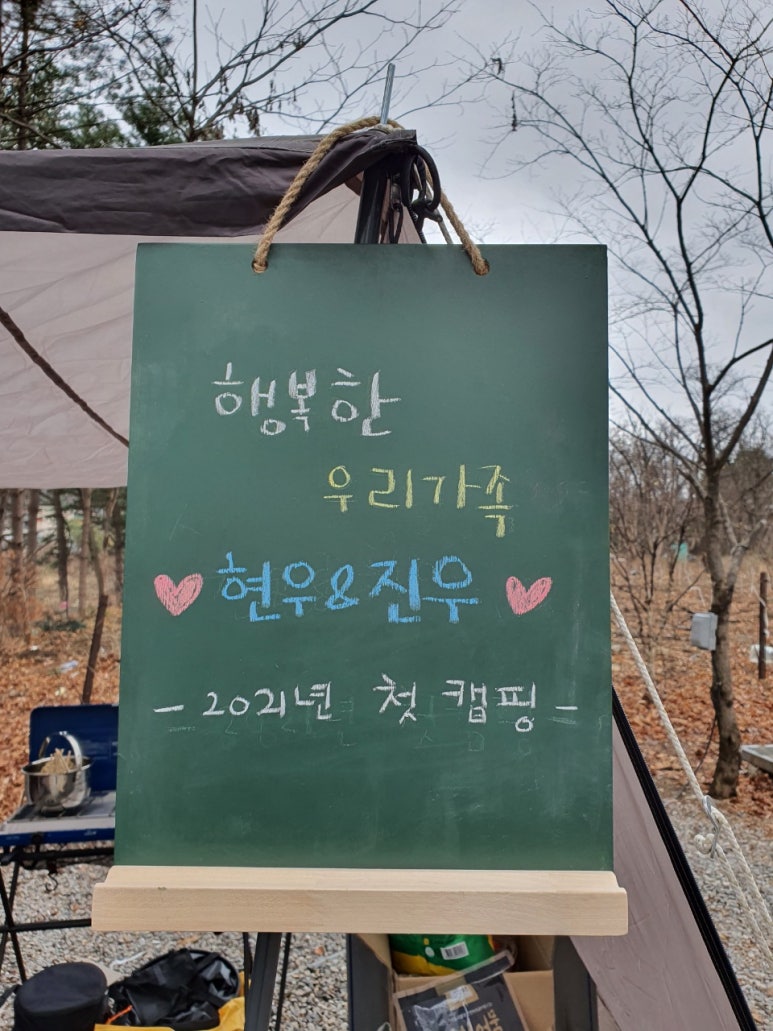 행복한
우리가족
♥ 현우&진우 ♥
- 2021년 첫 캠핑 -